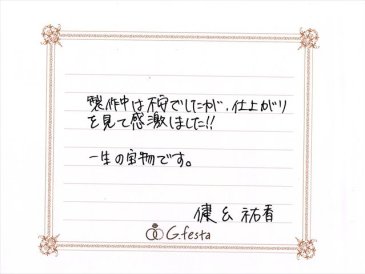 製作中は不安でしたが、仕上がり
を見て感激しました!!
一生の宝物です。
健 & 祐香
G.festa